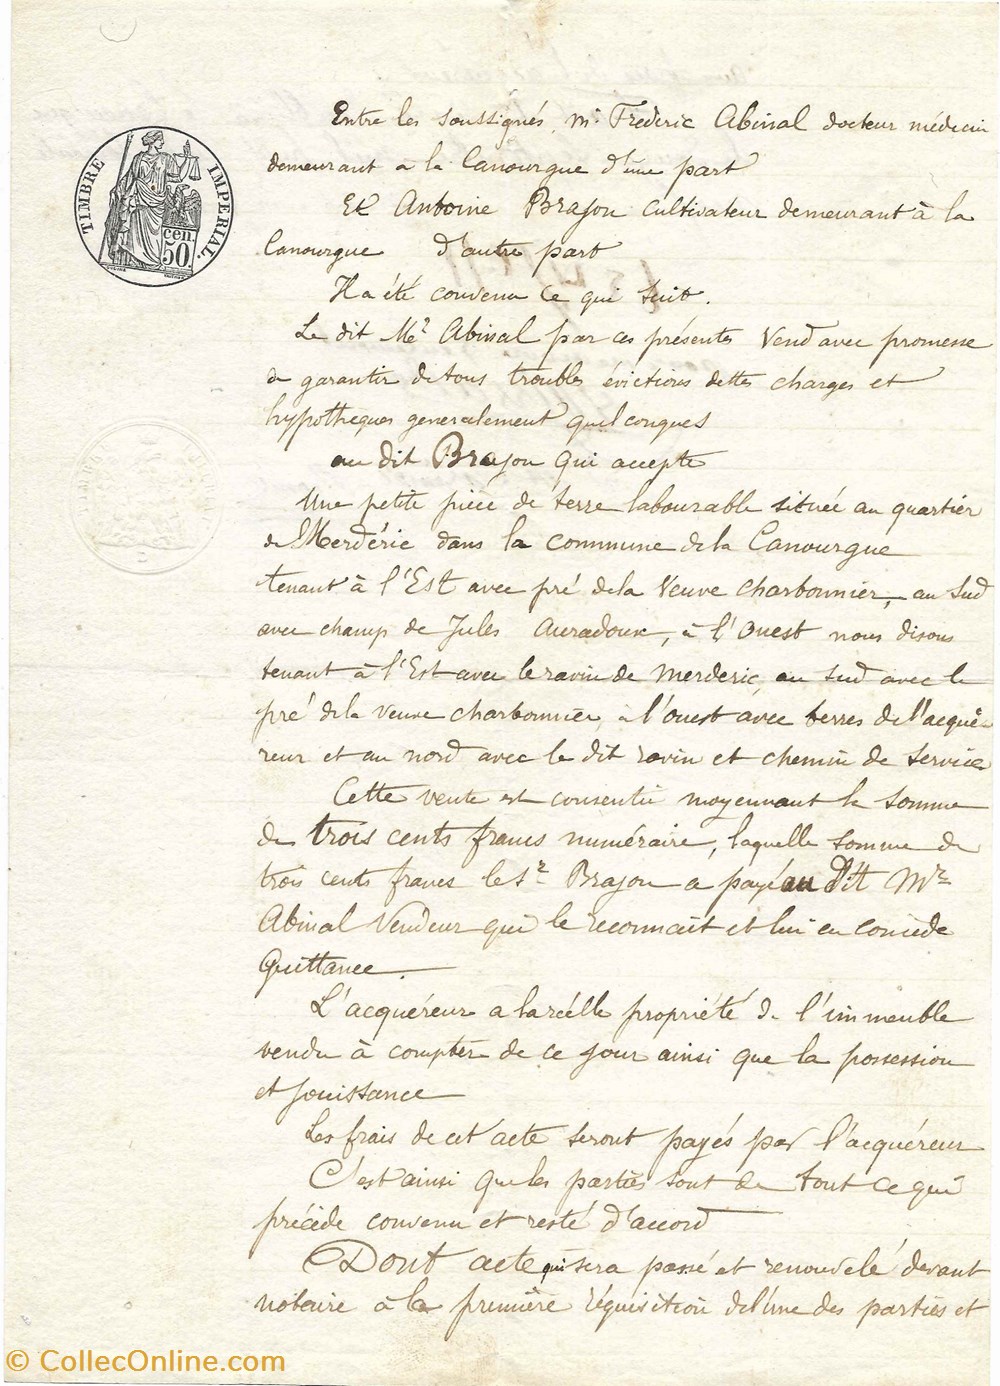 TIMBRE IMPÉRIAL.
50 cen.
Entre les soussignés, Mr Frédéric Abinal docteur médecin
demeurant a la Canourgue d'une part
Et Antoine Brajon cultivateur demeurant à la
Canourgue d'autre part
Il a été convenu ce qui suit.
Le dit Mr Abinal par ces présentes vend avec promesse
de garantir de tous troubles évictions dettes charges et
hypothèques generalement quelconques
au dit Brajon qui accepte
Une petite pièce de terre labourable située au quartier
de Merdéric dans la commune de la Canourgue
tenant à l'Est avec pré de la Veuve Charbonnier, au sud
avec champ de Jules Auradoux, à l'Ouest nous disons
tenant à l'Est avec le ravin de Merderic, au sud avec le
pré de la veuve charbonnier, à l'ouest avec terres de l'acqué-
reur et au nord avec le dit ravin et chemin de service
Cette vente est consentie moyennant la somme
de trois cents francs numéraire, laquelle somme de
trois cents francs le Sr Brajon a payé au dit Mr
Abinal Vendeur qui le reconnait et lui en concède
Quittance.
L'acquéreur a la réelle propriété de l'immeuble
vendu à compter de ce jour ainsi que la possession
et jouissance
Les frais de cet acte seront payés par l'acquéreur
C'est ainsi que les parties sont de tout ce qui
précède convenu et resté d'accord
Dont acte qui sera passé et renouvelé devant
notaire à la première réquisition de l'une des parties et
© CollecOnline.com